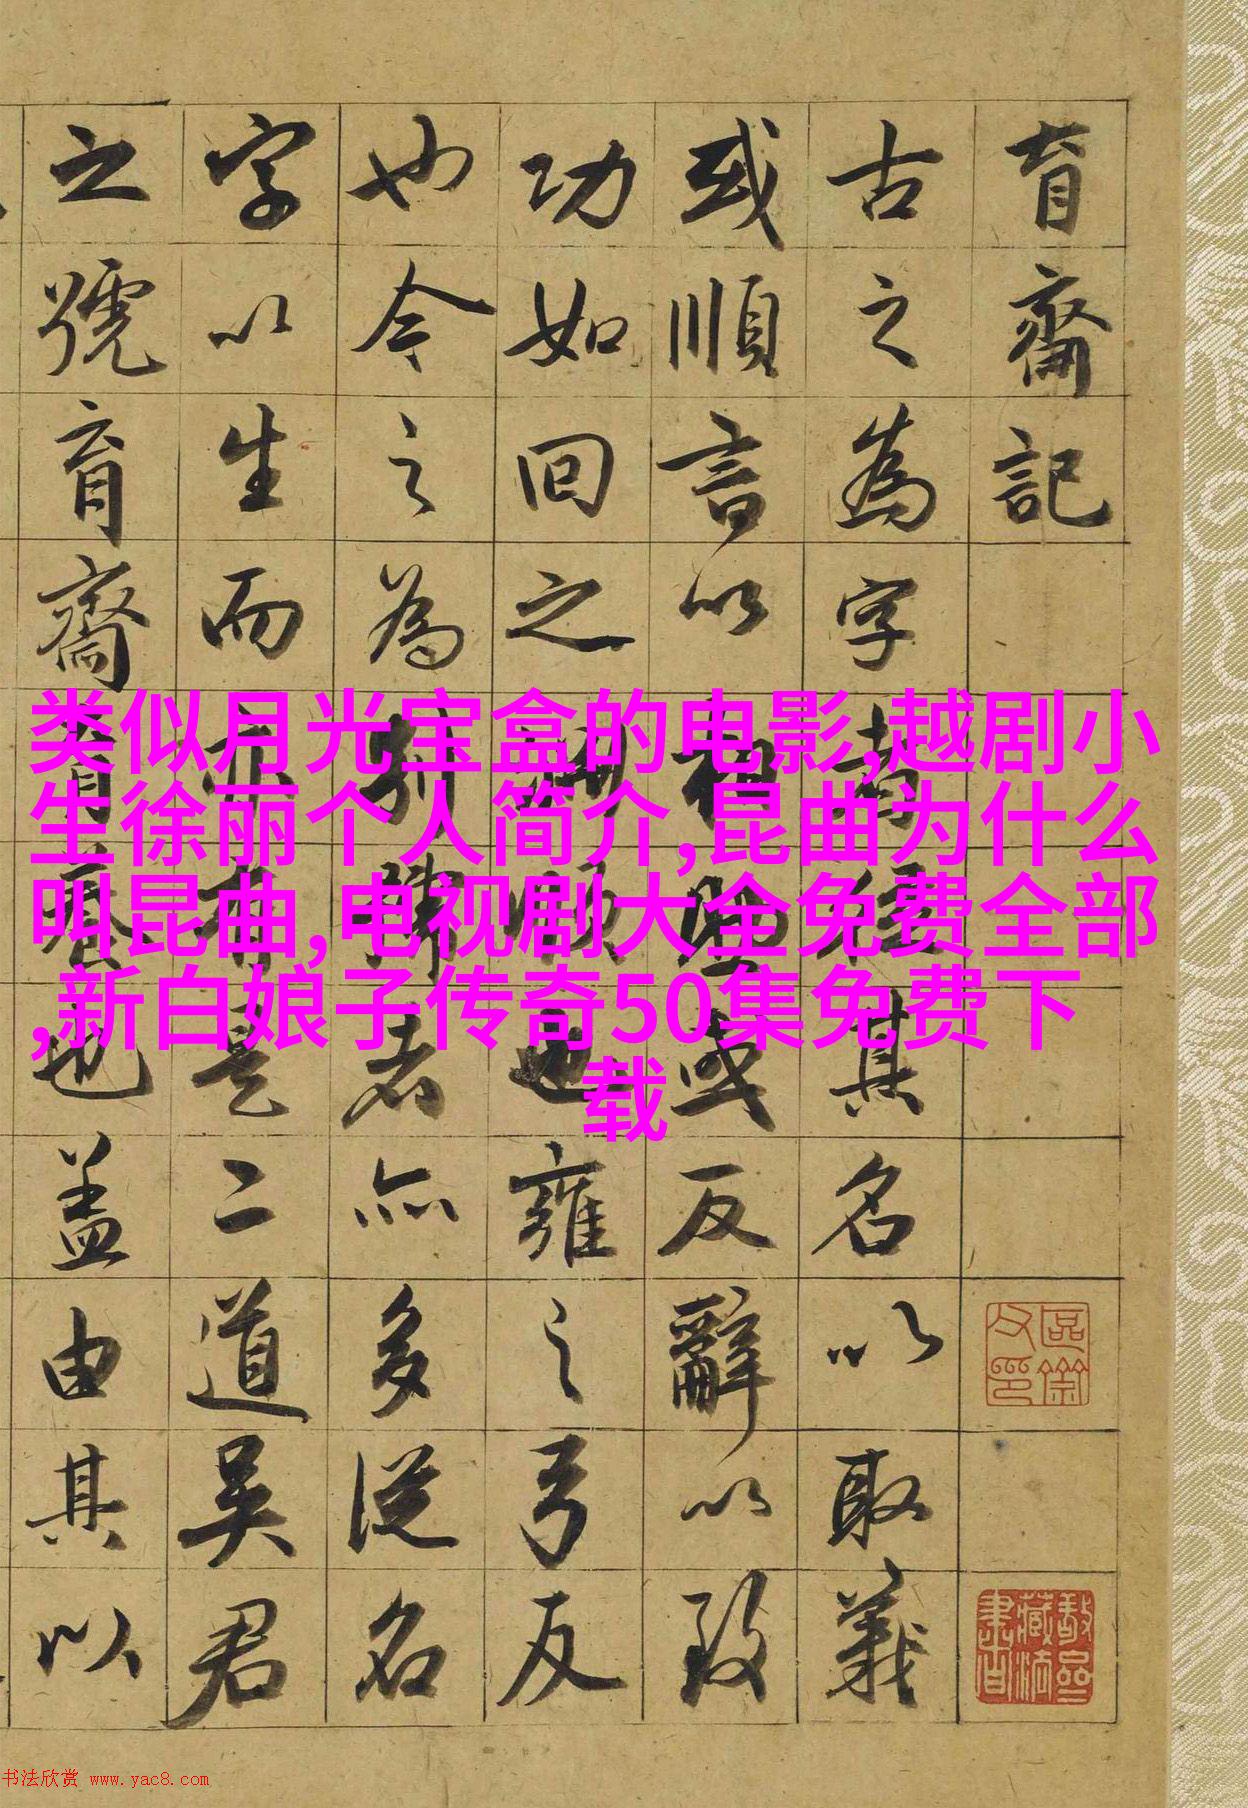 育齋記
古之為字者其名以取義
或順言以相與或反辭以致
功如回之淵順也雍之弓反
也令之為別號者亦多從名
字以生而亦有是二道吳君
之號育齋育養也蓋由其以
类似月光宝盒的电影,越剧小
生徐丽个人简介,昆曲为什么
叫昆曲,电视剧大全免费全部
,新白娘子传奇50集免费下
载
书法欣赏 www.yac8.com